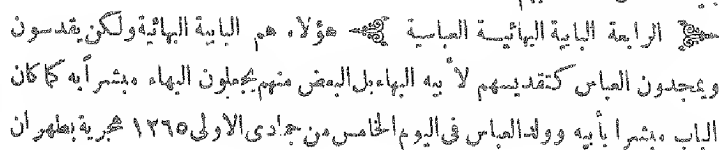 الرابعة البابية البهائيــة العباسية هؤلاء هم البابية البهائية ولكن يقدسون
ويمجدون العباس كتقديسهم لأ بيه البهاء بل البعض منهم يجعلون البهاء مبشراً به كما كان
الباب مبشرا بأبيه وولد العباس فى اليوم الخامس من جمادى الاولى ١٢٦٥ هجرية بطهران